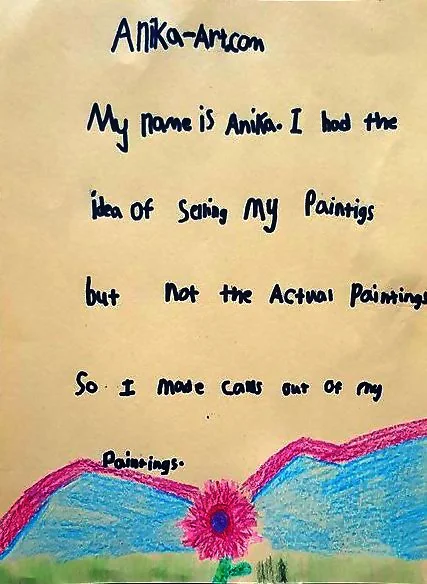 Anika-Art.com
My name is Anika. I had the
idea of Selling My Paintigs
but Not the Actual Paintings
So I made cards out of my
Paintings.